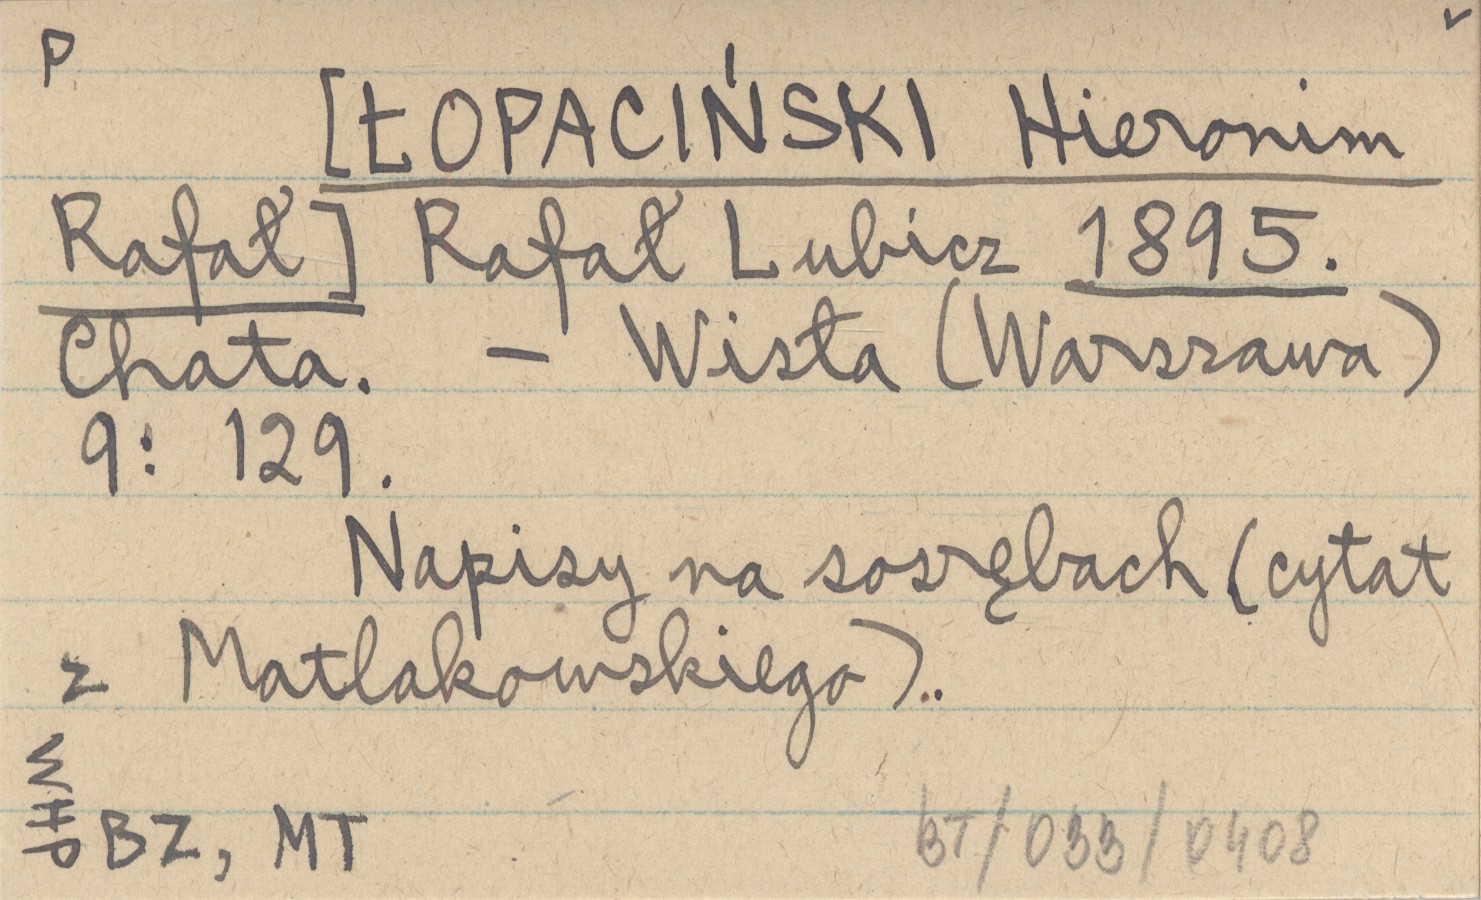 P
[ŁOPACIŃSKI Hieronim
Rafał] Rafał Lubicz 1895.
Chata. – Wisła (Warszawa)
9: 129.
Napisy na sosrębach (cytat
z Matlakowskiego)..
BZ, MT
BT/033/0408